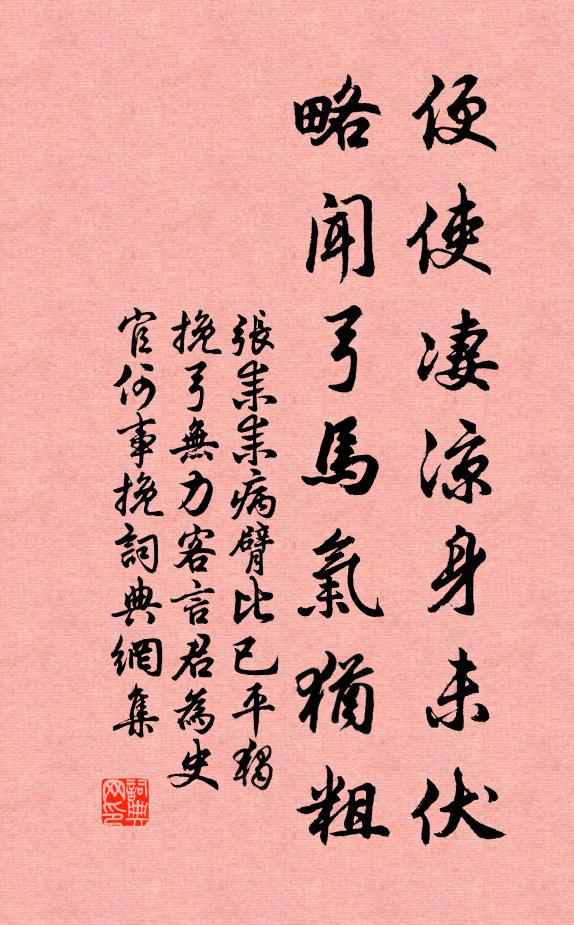 便使凄涼身未伏
略聞弓馬氣猶粗
張耒耒病臂比已平獨
挽弓無力客言君為史
官何事挽詞典網集
詞典網印